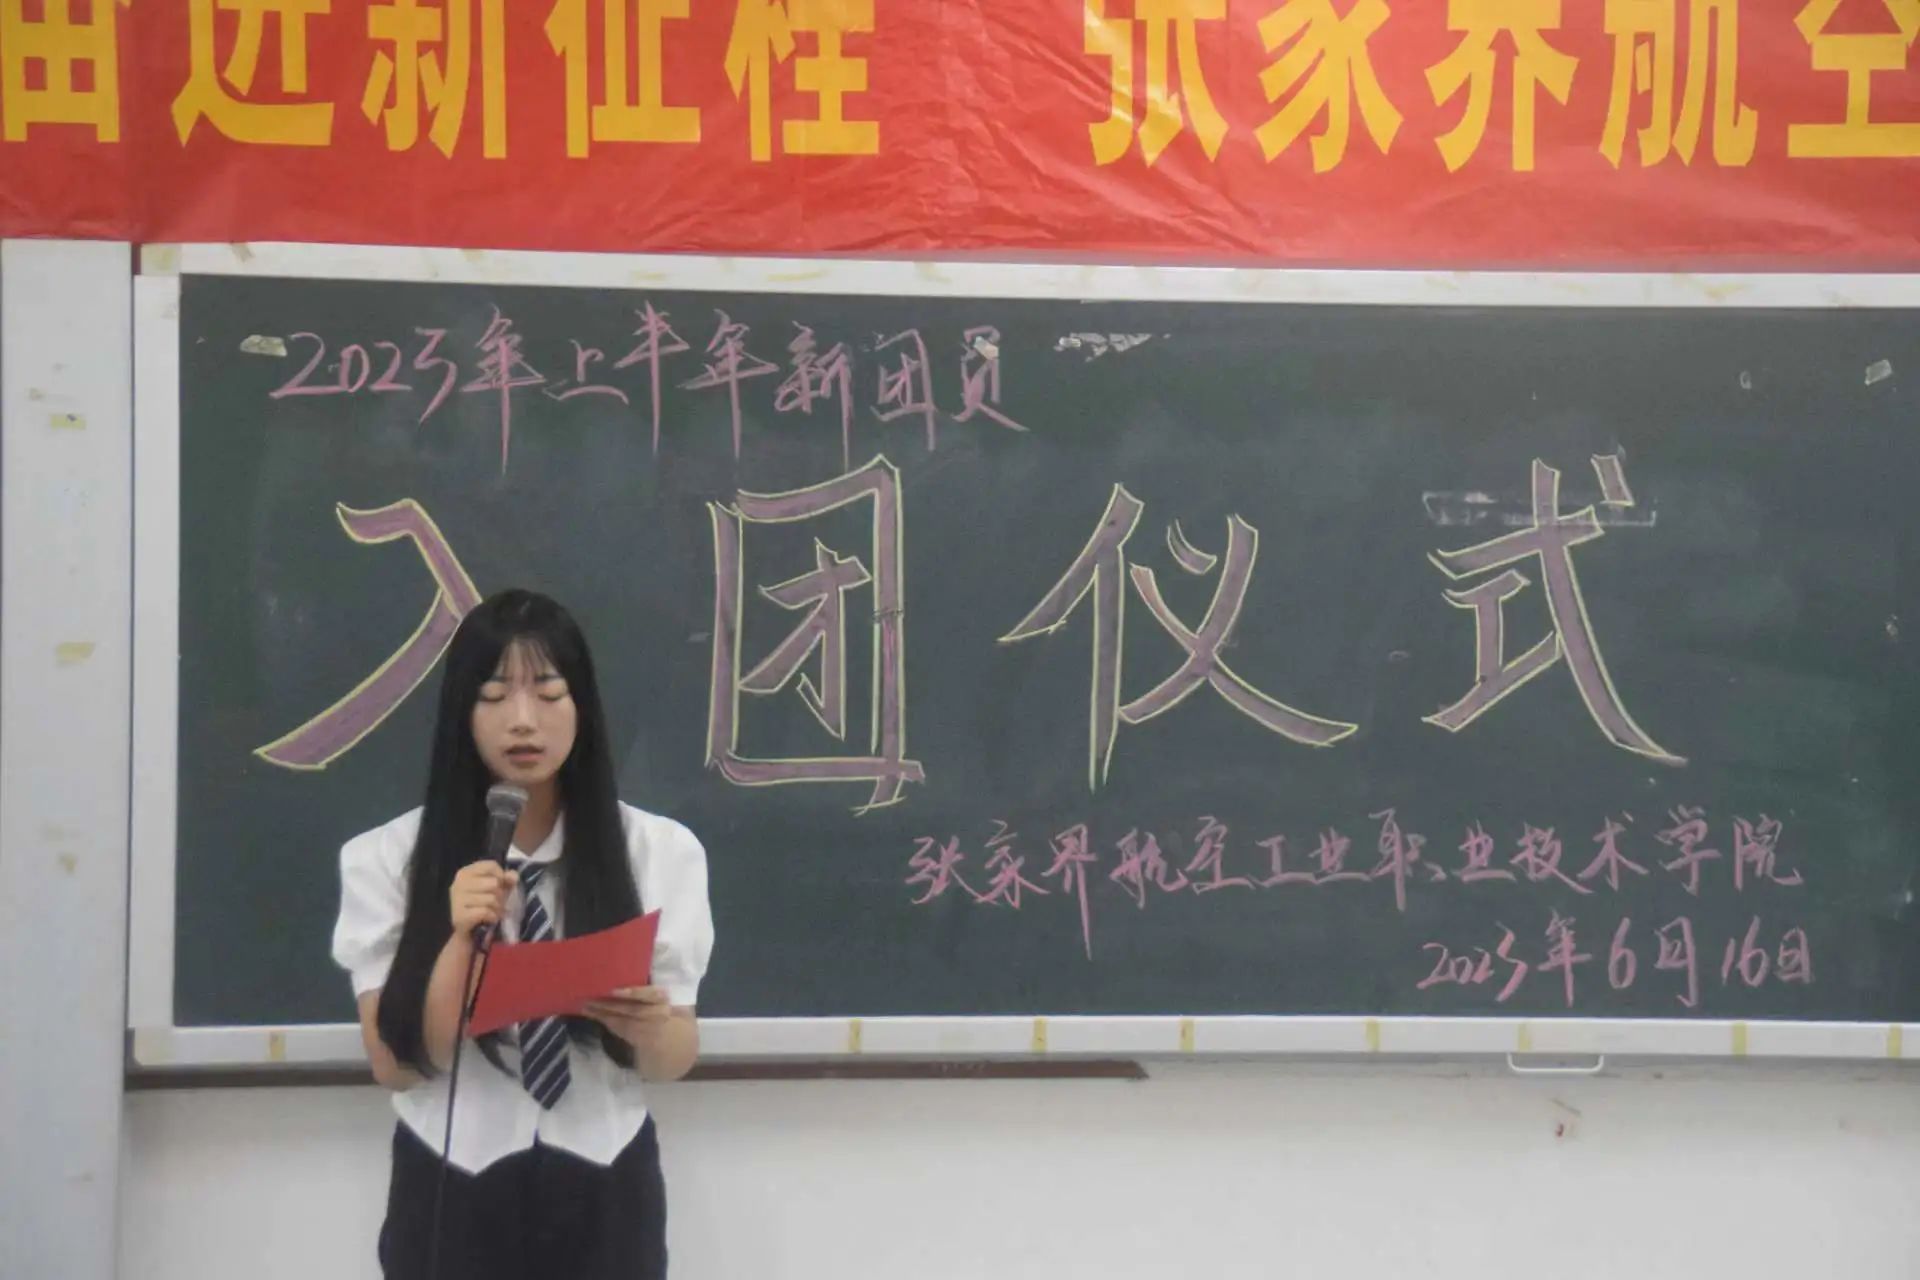 奋进新征程 张家界航空
2023年上半年新团员
入团仪式
张家界航空工业职业技术学院
2023年6月16日